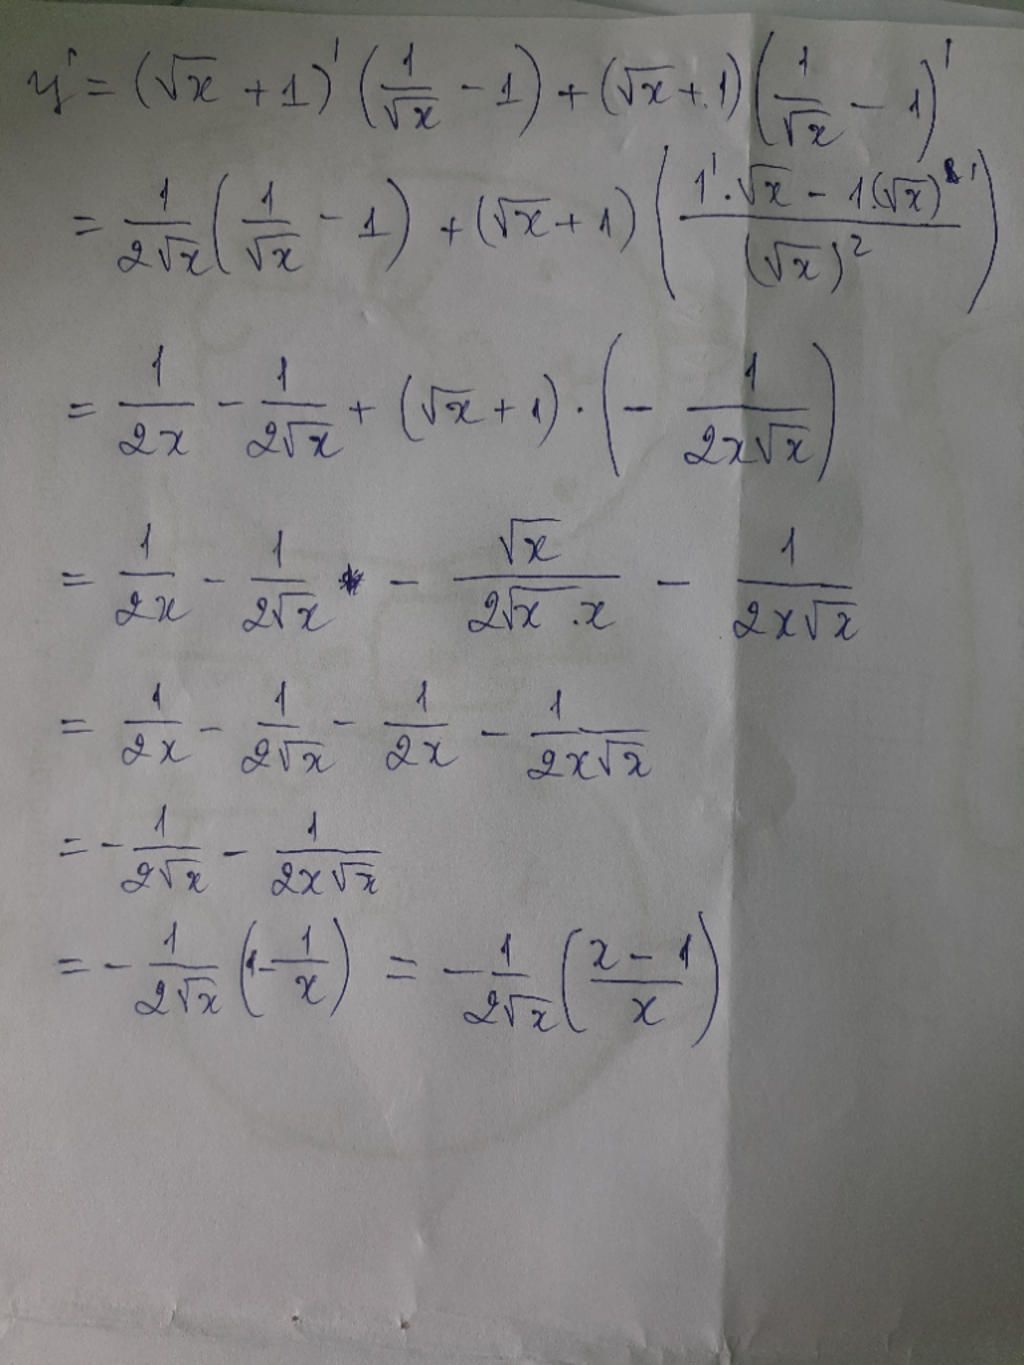 y' = (√x + 1)' (1/√x - 1) + (√x + 1) (1/√x - 1)'
= 1/2√x (1/√x - 1) + (√x + 1) (1'.√x - 1.(√x)'/(√x)²)
= 1/2x - 1/2√x + (√x + 1) . (- 1/2x√x)
= 1/2x - 1/2√x - √x/2√x .x - 1/2x√x
= 1/2x - 1/2√x - 1/2x - 1/2x√x
= - 1/2√x - 1/2x√x
= - 1/2√x (1 - 1/x) = - 1/2√x (x - 1/x)